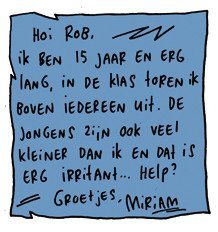 Hoi Rob,
ik ben 15 jaar en erg
lang, in de klas toren ik
boven iedereen uit. De
jongens zijn ook veel
kleiner dan ik en dat is
erg irritant... Help?
Groetjes, Miriam